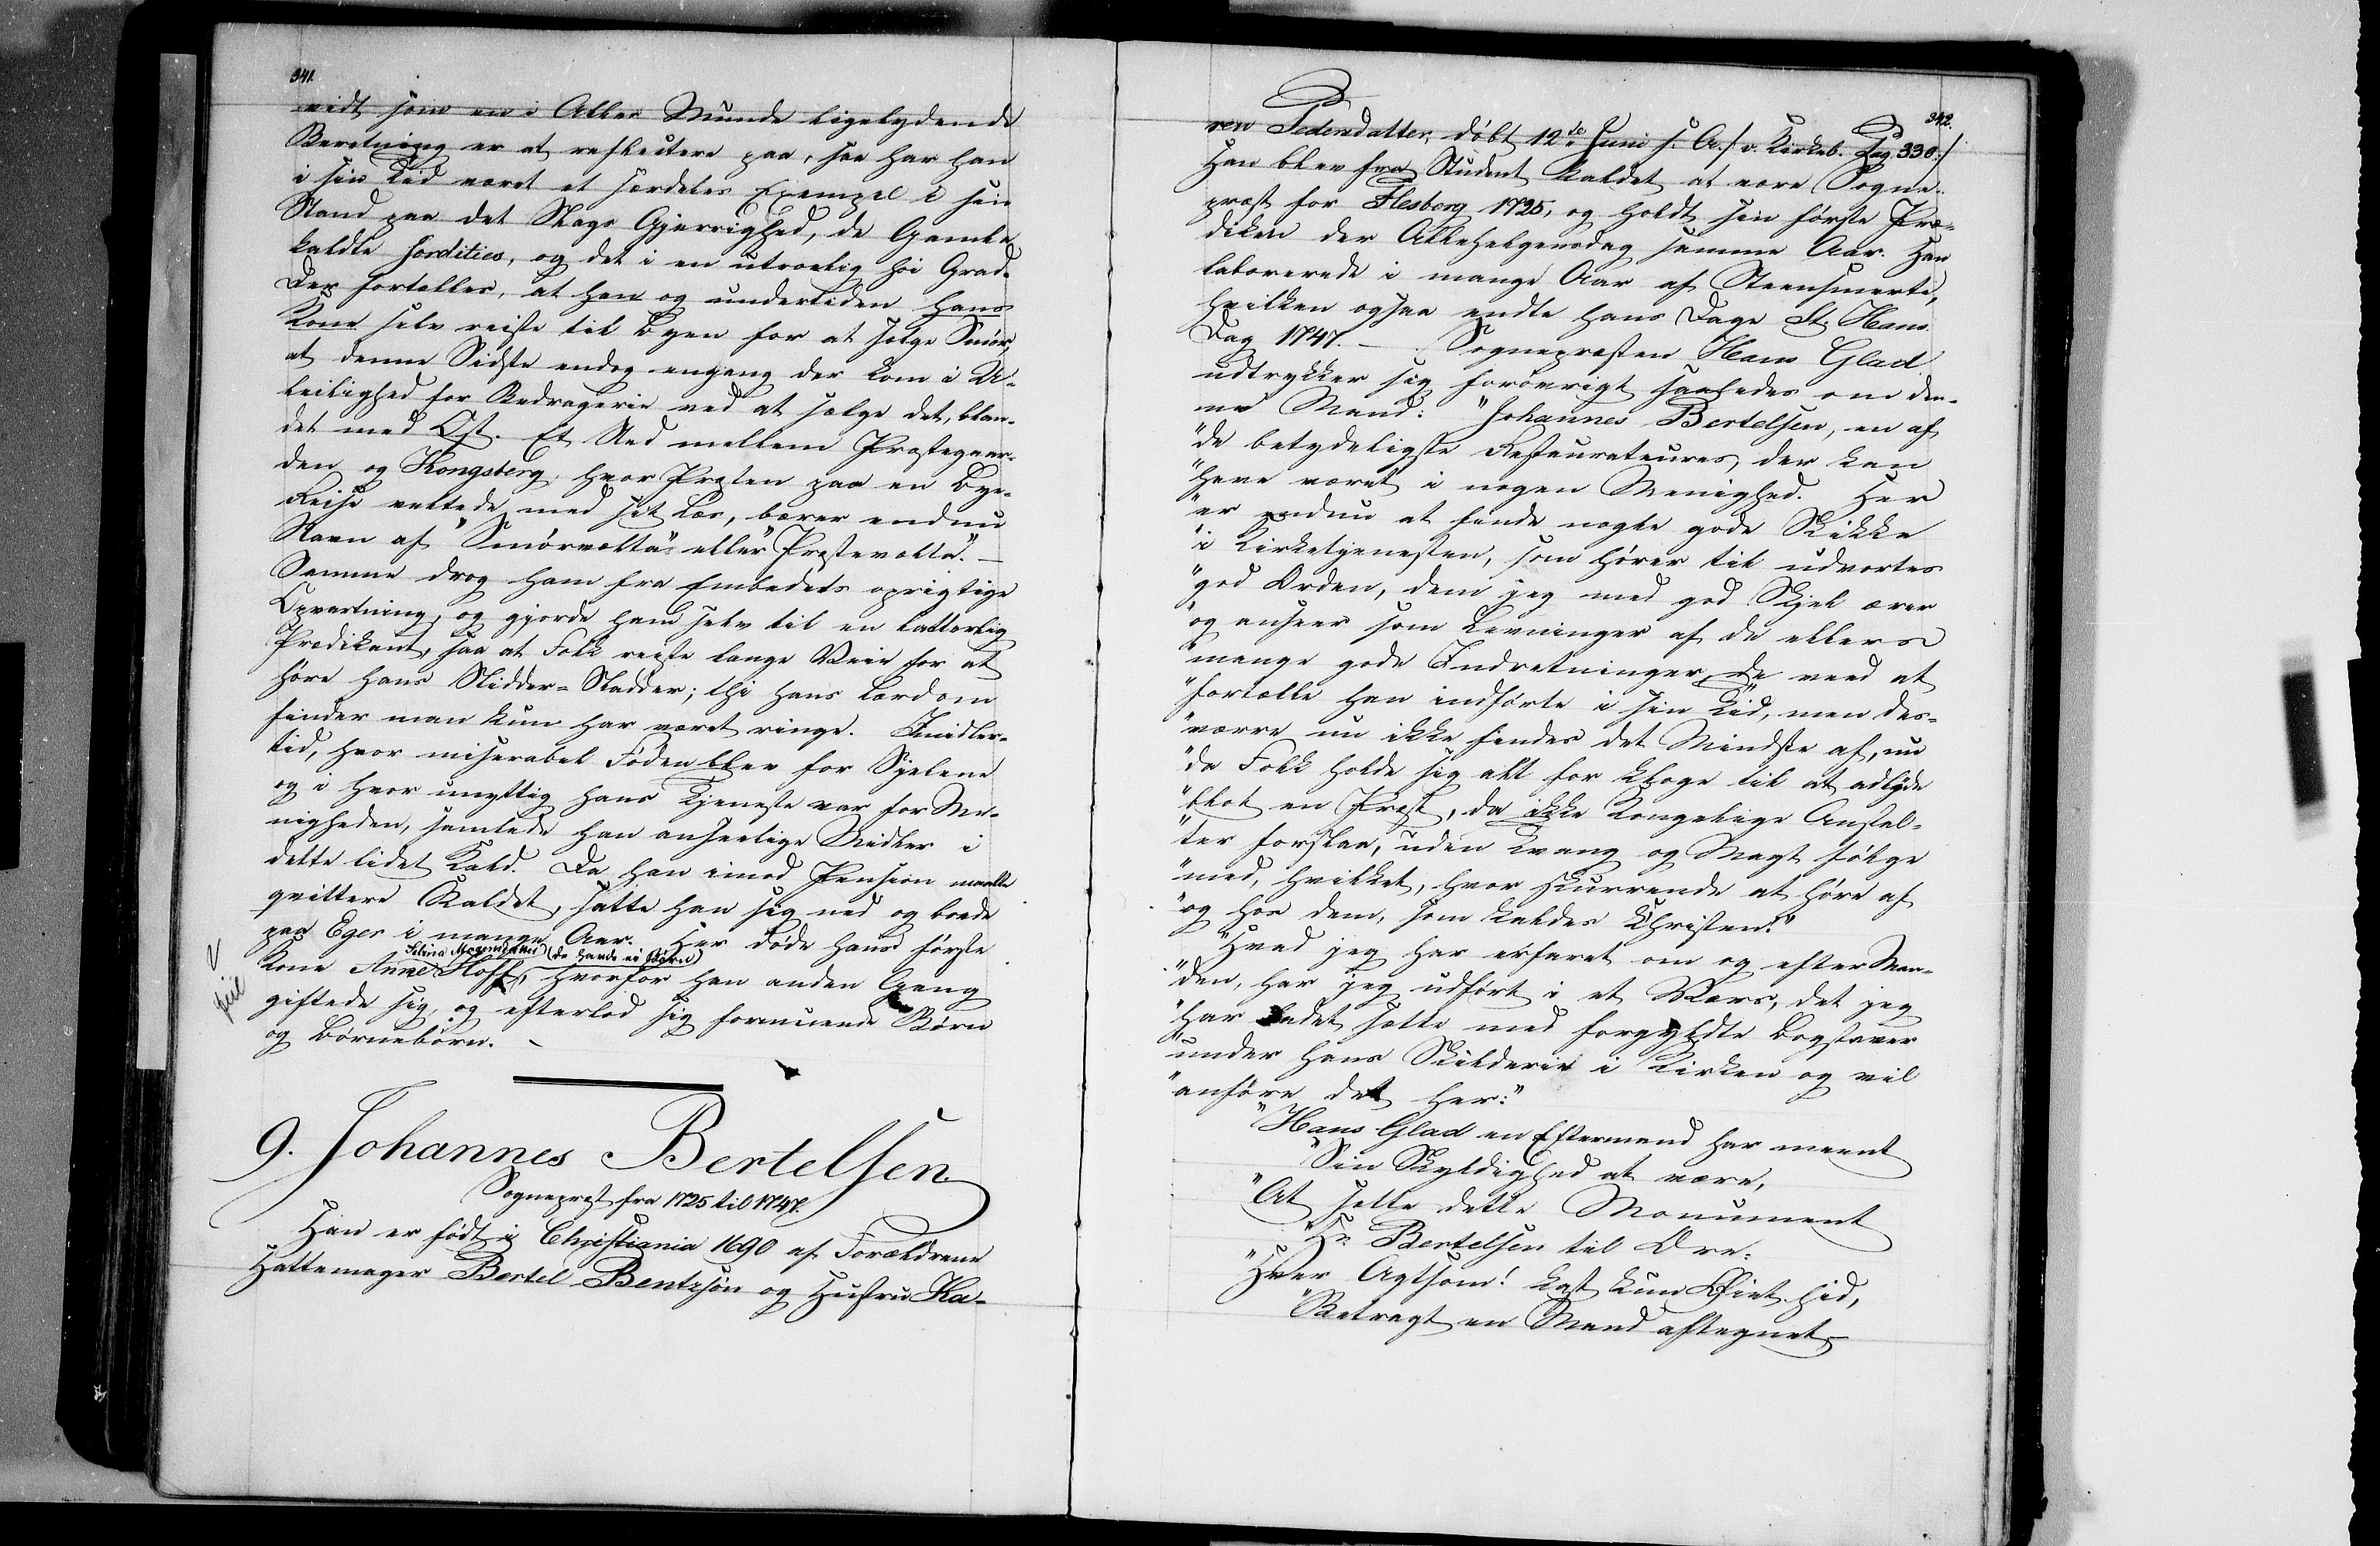 341.
vidt som en i Alles Munde ligelydende
Beretning er at reflectere paa, saa har han
i sin Tid været et særdeles Exempel i sin
Stand paa det Slags Gjerrighed, de Gamle
kaldte sordities, og det i en utroelig høi Grad.
Der fortælles, at han og undertiden hans
Kone selv reiste til Byen for at sælge Smør,
at denne Sidste endog engang der kom i U-
leilighed for Bedragerie ved at sælge det, blan-
det med Ost. Et Sted mellem Præstegaar-
den og Kongsberg, hvor Præsten paa en Bye-
Reise veltede med sit Læs, bærer endnu
Navn af "Smørvælta" eller "Præstevælta". —
Samme drog ham fra Embedets oprigtige
Opvartning, og gjorde ham selv til en latterlig
Prædikant, saa at Folk reiste lange Veie for at
høre hans Sladder-Sladder; thi hans Lærdom
finder man kun har været ringe. Imidler-
tid, hvor miserabel Føden blev for Sjelene
og i hvor unyttig hans Tjeneste var for Me-
nigheden, samlede han anseelige Midler i
dette lidet Kald. Da han imod Pension maatte
qvittere Kaldet, satte han sig ned og boede
paa Eger i mange Aar. Her døde hans første
Silina Mogensdatter (de havde ei Børn)
Kone Anne Hoff, hvorfor han anden Gang
feil
giftede sig, og efterlod sig formuende Børn
og Børnebørn. -
9. Johannes Bertelsen.
Sognepræst fra 1725 til 1747.
Han er født i Christiania 1690 af Forældrene
Hattemager Bertel Bentzsøn og Hustru Ka-
342.
ren Pedersdatter, døbt 12te Juni s. A. /: v. Kirkeb. Pag. 330 :/
Han blev fra Student kaldet at være Sogne-
præst for Flesberg 1725, og holdt sin første Præ-
diken der Allehelgensdag samme Aar. Han
laborerede i mange Aar af Steensmerte,
hvilken ogsaa endte hans Dage St. Hans
Dag 1747. — Sognepræsten Hans Glad
udtrykker sig forøvrigt saaledes om den-
ne Mand: "Johannes Bertelsen, en af
"de betydeligste Restaurateures, der kan
"have været i nogen Menighed. Her
"er endnu at finde nogle gode Skikke
"i Kirketjenesten, som hører til udvortes
"god Orden, dem jeg med god Skjel ærer
"og anseer som Levninger af de ellers
"mange gode Indretninger, de veed at
"fortælle han indførte i sin Tid, men des-
"værre nu ikke findes det Mindste af, nu
"da Folk holde sig alt for kloge til at adlyde
"blot en Præst, da ikke Kongelige Anstal-
"ter forslaa, uden Tvang og Magt følge
"med, hvilket, hvor skurrende at høre af
"og hos dem, som kaldes Christen!"
"Hvad jeg har erfaret om og efter Man-
"den, har jeg udført i et Vers, det jeg
"har ladet sætte med forgyldte Bogstaver
"under hans Skilderie i Kirken og vil
"anføre det her:"
"Hans Glad en Eftermand har meent
"Sin Skyldighed at være,
"At sette dette Monument
"Hr. Bertelsen til Ære.
"Hver Agtsom! kast kun Øiet hid,
"Betragt en Mand aftegnet -